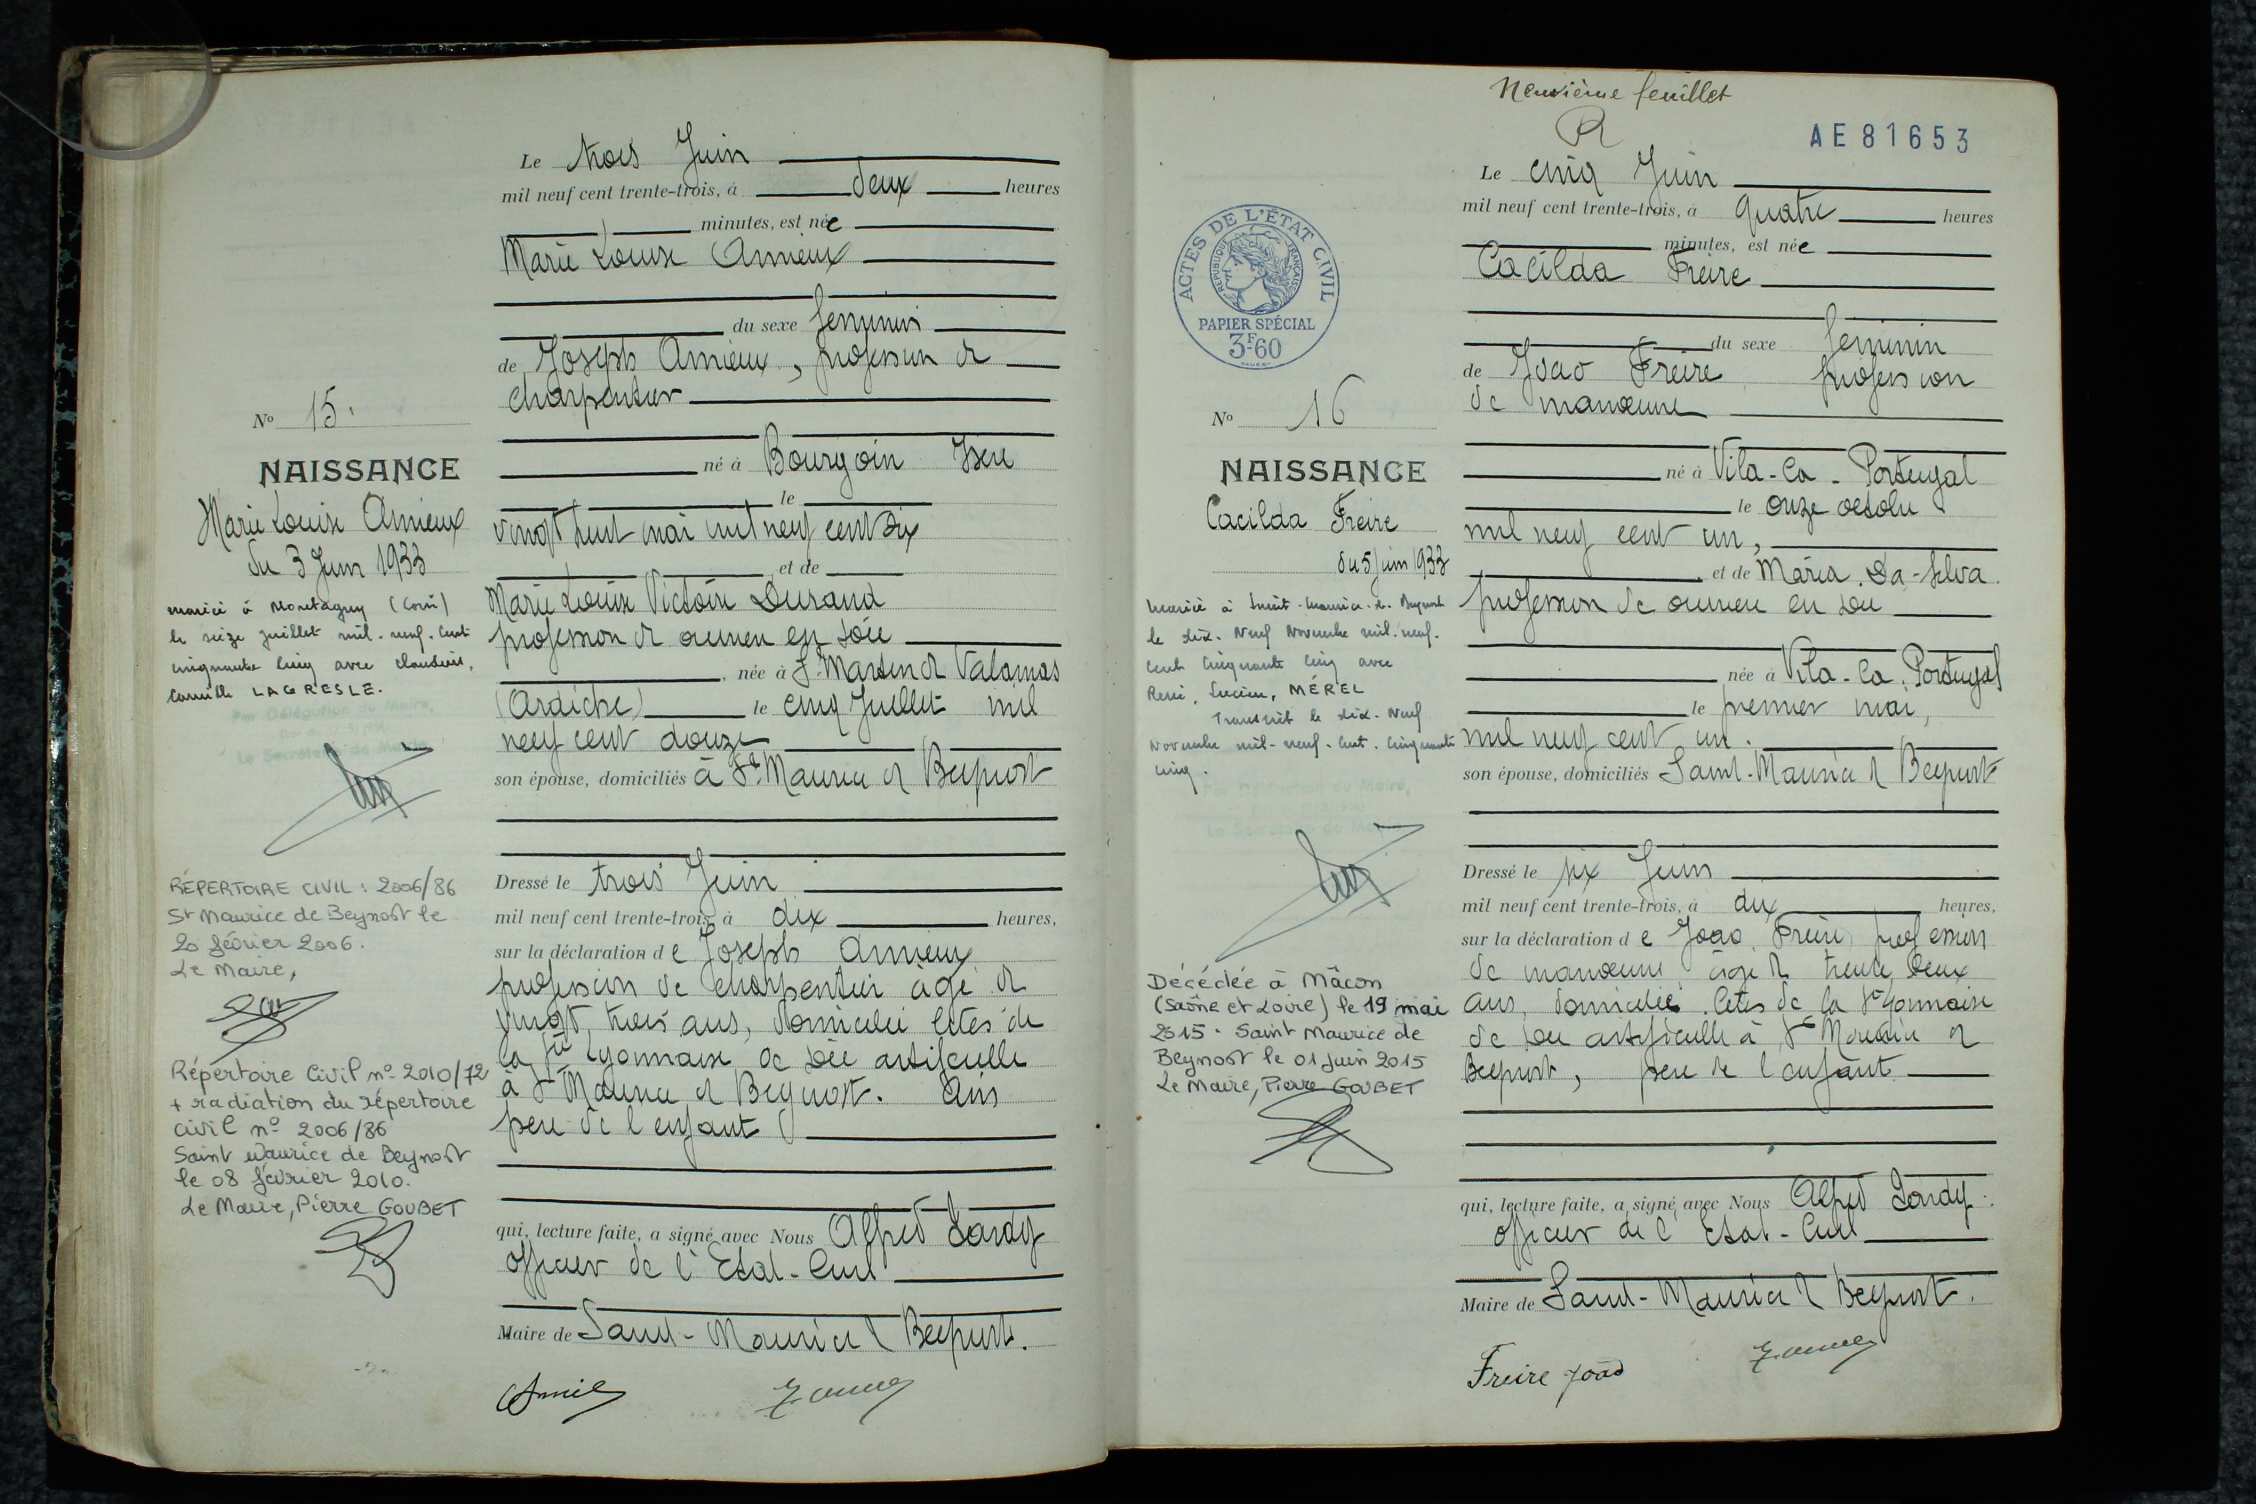 Le trois Juin
mil neuf cent trente-trois, à deux heures
minutes, est née
Marie Louise Amieux
du sexe feminin
de Joseph Amieux, profession de
charpentier
né à Bourgoin Isere
le
vingt huit mai mil neuf cent dix
et de
Marie Louise Victoire Durand
profession de ouvriere en soie
, née à St Martin de Valamas
(Ardèche) le cinq Juillet mil
neuf cent douze
son épouse, domiciliés à St Maurice de Beynost
Dressé le trois Juin
mil neuf cent trente-trois, à dix heures,
sur la déclaration de Joseph Amieux
profession de charpentier âgé de
vingt trois ans, domicilié Cités de
la Sté Lyonnaise de soie artificielle
à St Maurice de Beynost.
pere de l'enfant
qui, lecture faite, a signé avec Nous Alfred
officier de l'Etat-Civil
Maire de Saint-Maurice de Beynost.
No 15.
NAISSANCE
Marie Louise Amieux
du 3 Juin 1933
mariée à Montagny (Loire)
le seize juillet mil-neuf-cent
cinquante cinq avec Claudius,
Camille LAGRESLE.
Par Délégation du Maire,
Le Secrétaire de Mairie
RÉPERTOIRE CIVIL : 2006/86
St Maurice de Beynost le
20 février 2006.
Le Maire,
Répertoire Civil no 2010/72
+ radiation du répertoire
civil no 2006/86
Saint Maurice de Beynost
le 08 février 2010.
Le Maire, Pierre GOUBET
Neuvième feuillet
AE81653
ACTES DE L'ÉTAT CIVIL
RÉPUBLIQUE FRANÇAISE
PAPIER SPÉCIAL
3F60
Le cinq Juin
mil neuf cent trente-trois, à quatre heures
minutes, est née
Cacilda Freire
du sexe feminin
de Joao Freire profession
de manœuvre
né à Vila-Ca-Portugal
le onze octobre
mil neuf cent un,
et de Maria Da-Silva
profession de ouvriere en soie
née à Vila-Ca, Portugal
le premier mai,
mil neuf cent un.
son épouse, domiciliés Saint-Maurice de Beynost
Dressé le six Juin
mil neuf cent trente-trois, à dix heures,
sur la déclaration de Joao Freire profession
de manœuvre âgé de trente deux
ans, domicilié Cités de la Sté Lyonnaise
de soie artificielle à St Maurice de
Beynost, pere de l'enfant
qui, lecture faite, a signé avec Nous Alfred
officier de l'Etat-Civil
Maire de Saint-Maurice de Beynost.
Freire Joaõ
No 16
NAISSANCE
Cacilda Freire
du 5 Juin 1933
Mariée à Saint-Maurice-de-Beynost
le dix-Neuf Novembre mil-neuf-
cent cinquante cinq avec
René, Lucien, MÉREL
Transcrit le dix-Neuf
Novembre mil-neuf-cent-cinquante
cinq.
Par Délégation du Maire,
Le Secrétaire de Mairie
Décédée à Mâcon
(Saône et Loire) le 19 mai
2015. Saint Maurice de
Beynost le 01 juin 2015
Le Maire, Pierre GOUBET